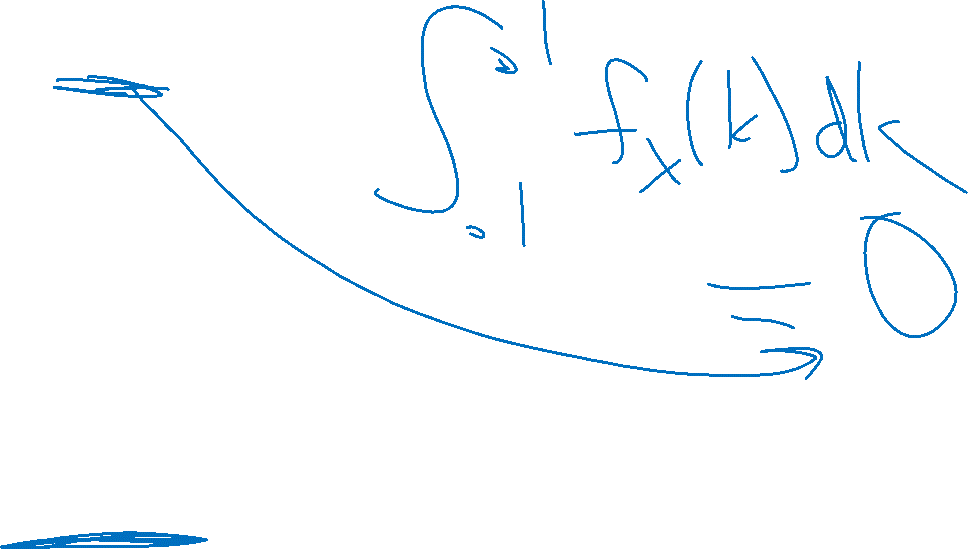 ∫_{.1}^{.1} f_x(k) dk
= 0